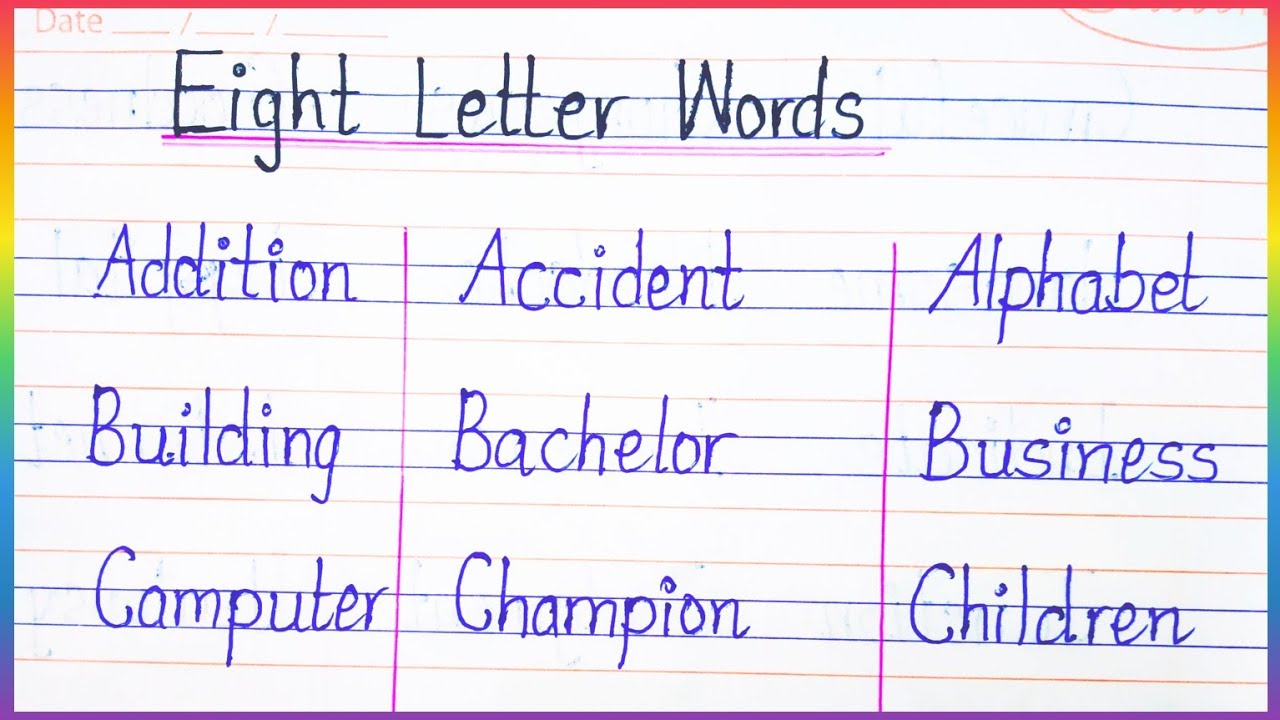 Date __/__/__
Eight Letter Words
Addition Accident Alphabet
Building Bachelor Business
Computer Champion Children